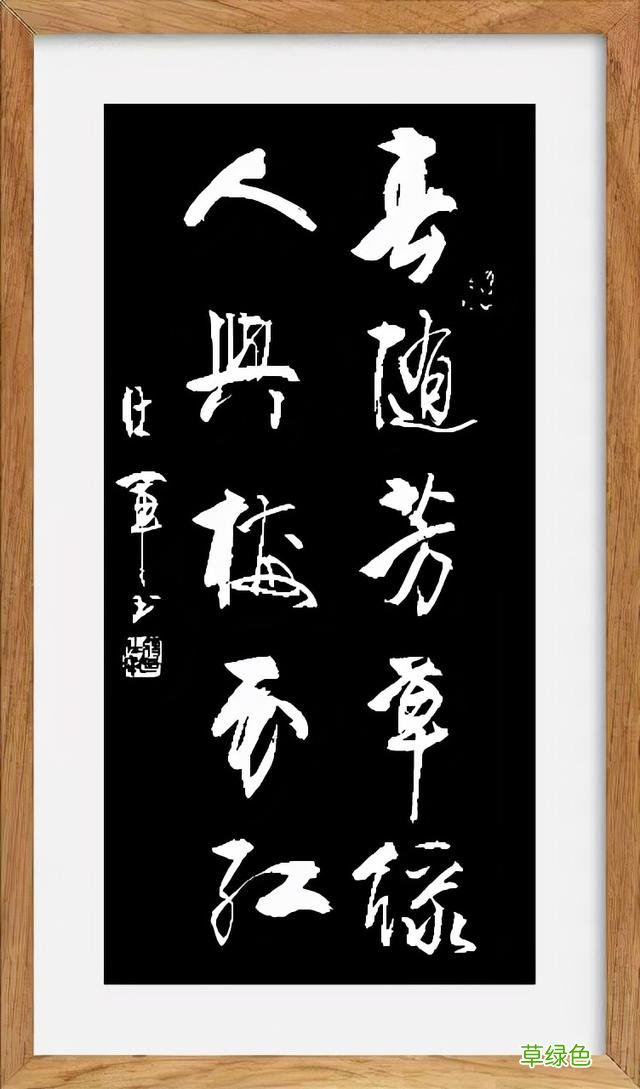 春随芳草綠
人與梅花紅
軍书
草绿色